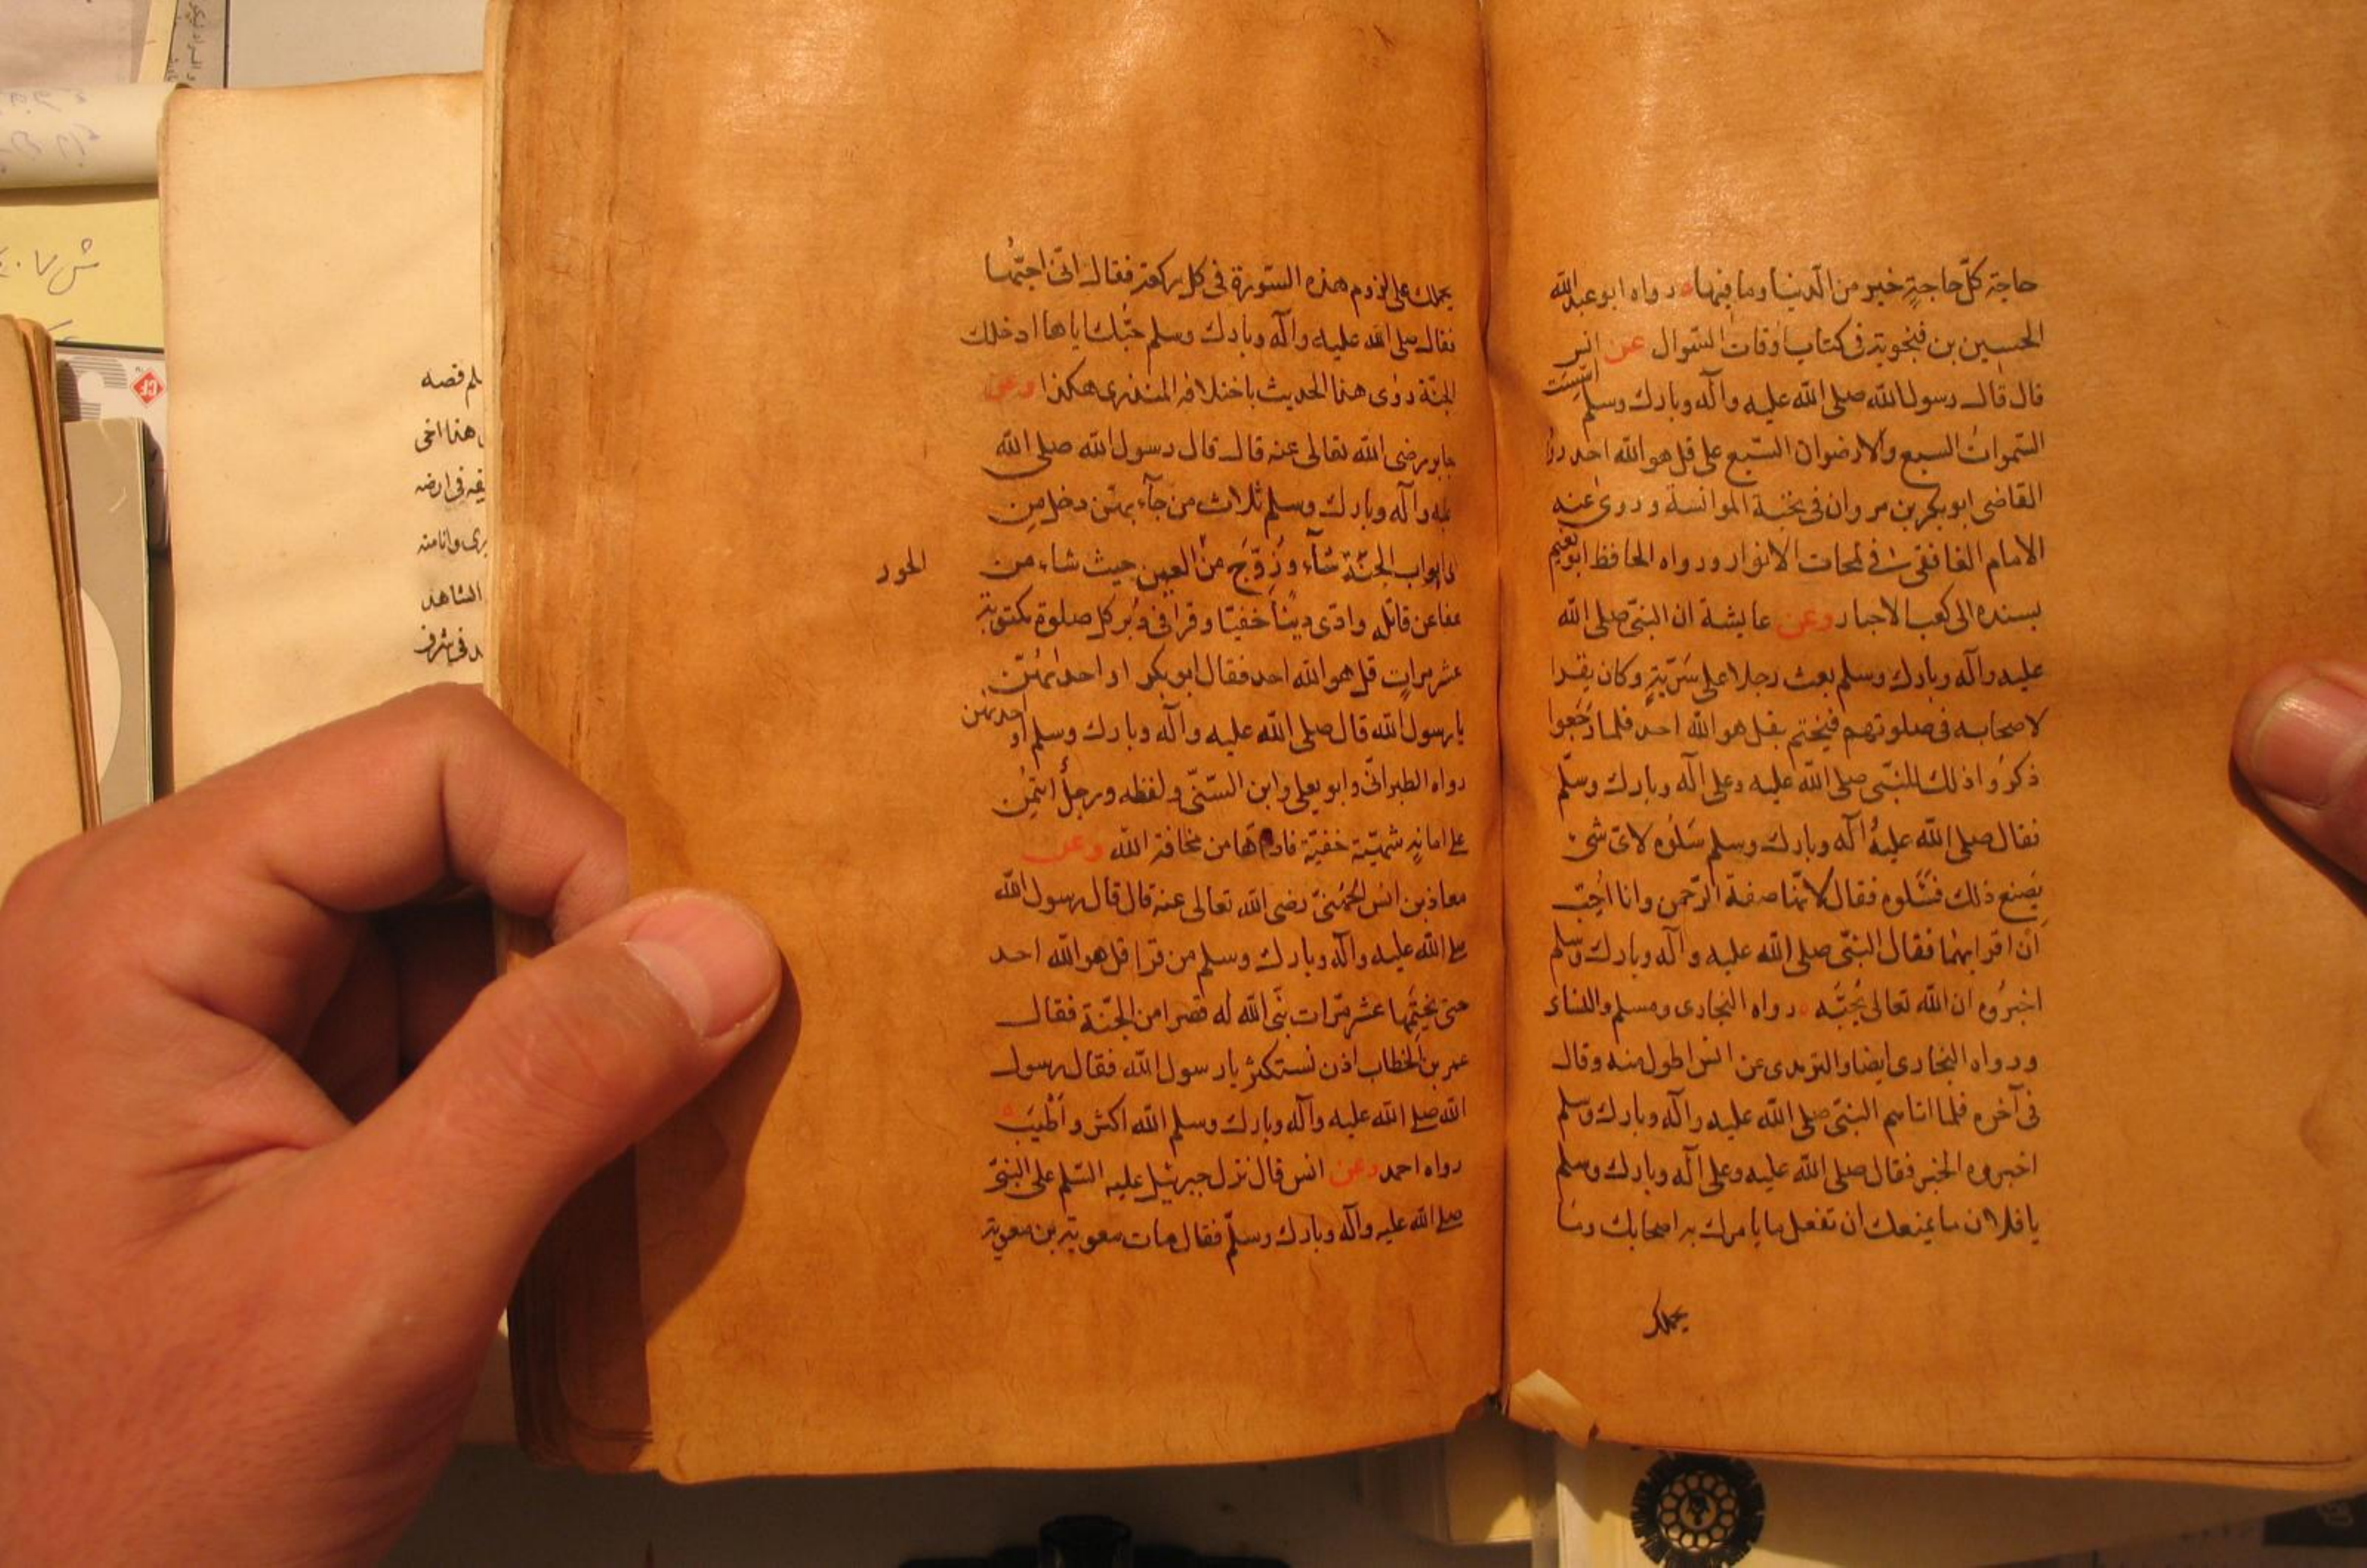 حاجة كلّ حاجةٍ خير من الدنيا وما فيها ه رواه ابو عبد الله
الحسين بن فنجوية في كتاب اوقات السّوال عن انس
قال قال رسول الله صلى الله عليه وآله وبارك وسلم اسّسَت
السّموات السبع والارضوان السّبع على قل هو الله احد روا
القاضى ابو بكر بن مروان فى نخبة الموانسة وروى عنه
الامام الغافقى فى لمحات الانوار ورواه الحافظ ابو نعيم
بسنده الى كعب الاحبار وعن عايشة ان النبىّ صلى الله
عليه وآله وبارك وسلم بعث رجلا على سَرّيةٍ وكان يقرا
لاصحابه فى صلوتهم فيختم بقل هو الله احد فلما رَجَعوا
ذكرُوا ذلك للنبّى صلى الله عليه وعلى آله وبارك وسلّم
فقال صلى الله عليهُ آله وبارك وسلم سَلوُه لاىّ شىء
يَصنع ذلك فسَّلوه فقال لانّها صفة الرّحمن وانا اُحِبّ
اَن اقرا بها فقال النبّى صلى الله عليه وآله وبارك وسلم
اخبرُوه ان الله تعالى يُحِبّه ه رواه البخارى ومسلم والنساء
ورواه البخارى ايضا والترمدى عن انس اطول منه وقال
فى آخره فلما اتاهم النبىّ صلى الله عليه وآله وبارك وسلم
اخبروه الخبر فقال صلى الله عليه وعلى آله وبارك وسلم
يا فلان ما يمنعك ان تفعل ما يامرك به اصحابك وما
يحملك
يحملك على لزوم هذه السّورة فى كل ركعة فقال انّى احبّها
فقال صلى الله عليه وآله وبارك وسلم حبّك اياها ادخلك
الجنّة روٰى هذا الحديث باختلافه المنذرى هكذا وعن
جابر رضى الله تعالى عنه قال قال رسول الله صلى الله
عليه وآله وبارك وسلم ثلاث من جآء بهنّ دخل من
اى ابواب الجنّة شآء وزُوّجَ من العين حيث شاء من
الحور
عفا عن قاتله وادّى دينًا خفيّا وقرا فى دُبر كل صلوة مكتوبة
عشر مراتٍ قل هو الله احد فقال ابو بكر او احدٰهُنّ
يا رسول الله قال صلى الله عليه وآله وبارك وسلم او احديهن
رواه الطبرانّى وابو يعلى وابن السّنّى ولفظه ورجلٌ ائتُمِن
على امانةٍ شهيّة خفيّة فادّٰها من مخافة الله وعن
معاذ بن انس الجُهُنىّ رضى الله تعالى عنه قال قال رسول الله
صلى الله عليه وآله وبارك وسلم من قرا قل هو الله احد
حتى يختِمَها عشر مرّات بَنَى الله له قصرا من الجنّة فقال
عمر بن الخطاب اذن نستكثر يا رسول الله فقال رسول
الله صلى الله عليه وآله وبارك وسلم الله اكثر واَطْيَب ه
رواه احمد وعن انس قال نزل جبرئيل عليه السّلم على النبىّ
صلى الله عليه وآله وبارك وسلّم فقال مات معوية بن معوية
لم قصه
هذا اخى
فى ارضه
وانا منه
الشاهد
فى شرف